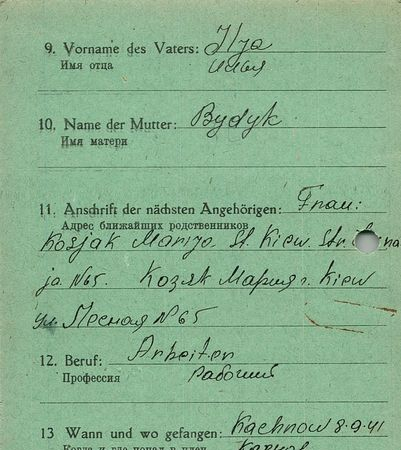 9. Vorname des Vaters: Ilja
Имя отца Илья
10. Name der Mutter: Bydyk
Имя матери
11. Anschrift der nächsten Angehörigen: Frau:
Адрес ближайших родственников
Kosjak Marija St. Kiew Str.
ja N65. Козяк Мария г. Kiew
ул. Лесная N65
12. Beruf: Arbeiter
Профессия рабочий
13 Wann und wo gefangen: 8.9.41
Когда и где попал в плен